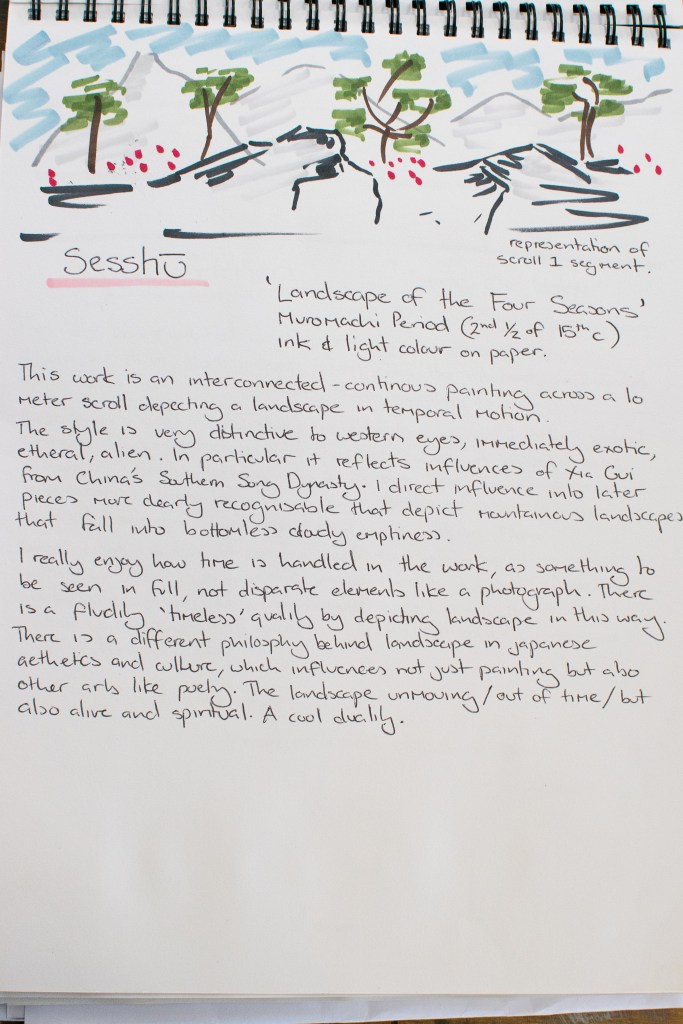 Sesshū
representation of
scroll 1 segment.
'Landscape of the Four Seasons'
Muromachi Period (2nd 1/2 of 15th c)
Ink & light colour on paper.
This work is an interconnected-continous painting across a 10
meter scroll depecting a landscape in temporal motion.
The style is very distinctive to western eyes, immediately exotic,
etheral, alien. In particular it reflects influences of Xia Gui
from China's Southern Song Dynasty. I direct influence into later
pieces more clearly recognisable that depict mountainous landscapes
that fall into bottomless cloudy emptiness.
I really enjoy how time is handled in the work, as something to
be seen in full, not disparate elements like a photograph. There
is a fludily 'timeless' quality by depicting landscape in this way.
There is a different philosphy behind landscape in japanese
aethetics and culture, which influences not just painting but also
other arts like poety. The landscape unmoving/out of time/but
also alive and spiritual. A cool duality.